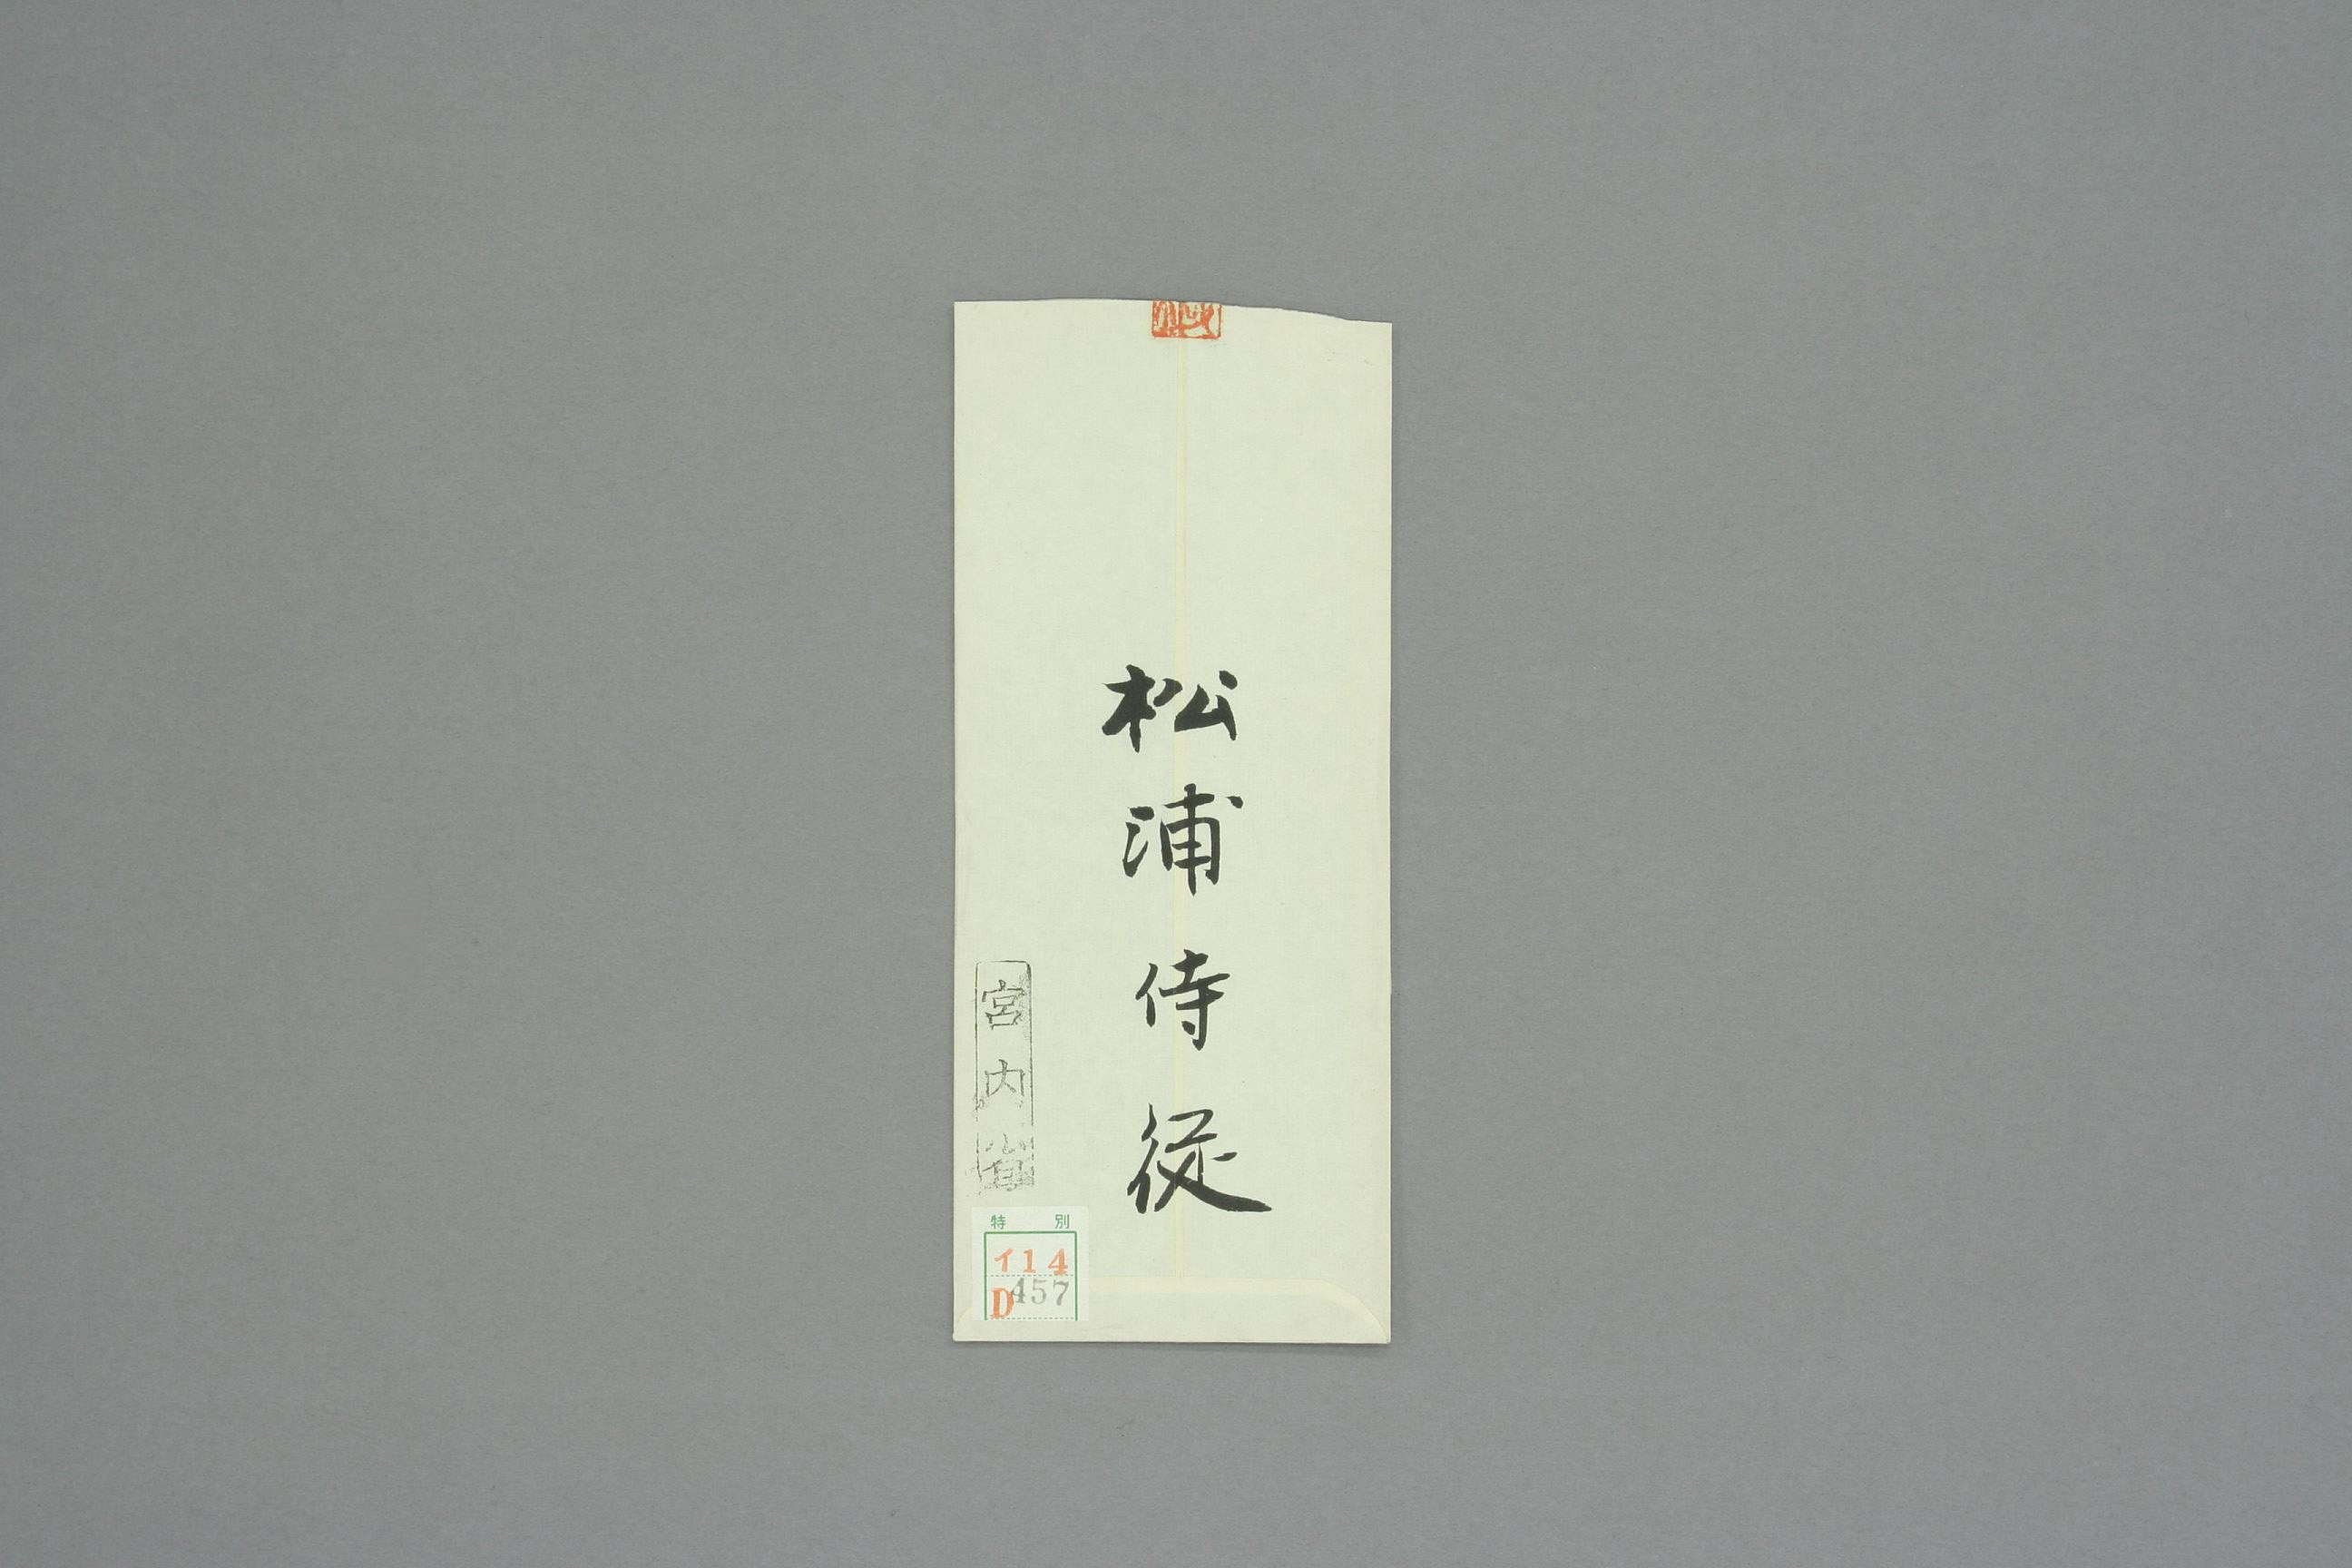 松浦侍従
宮内省
特別
イ14
D457